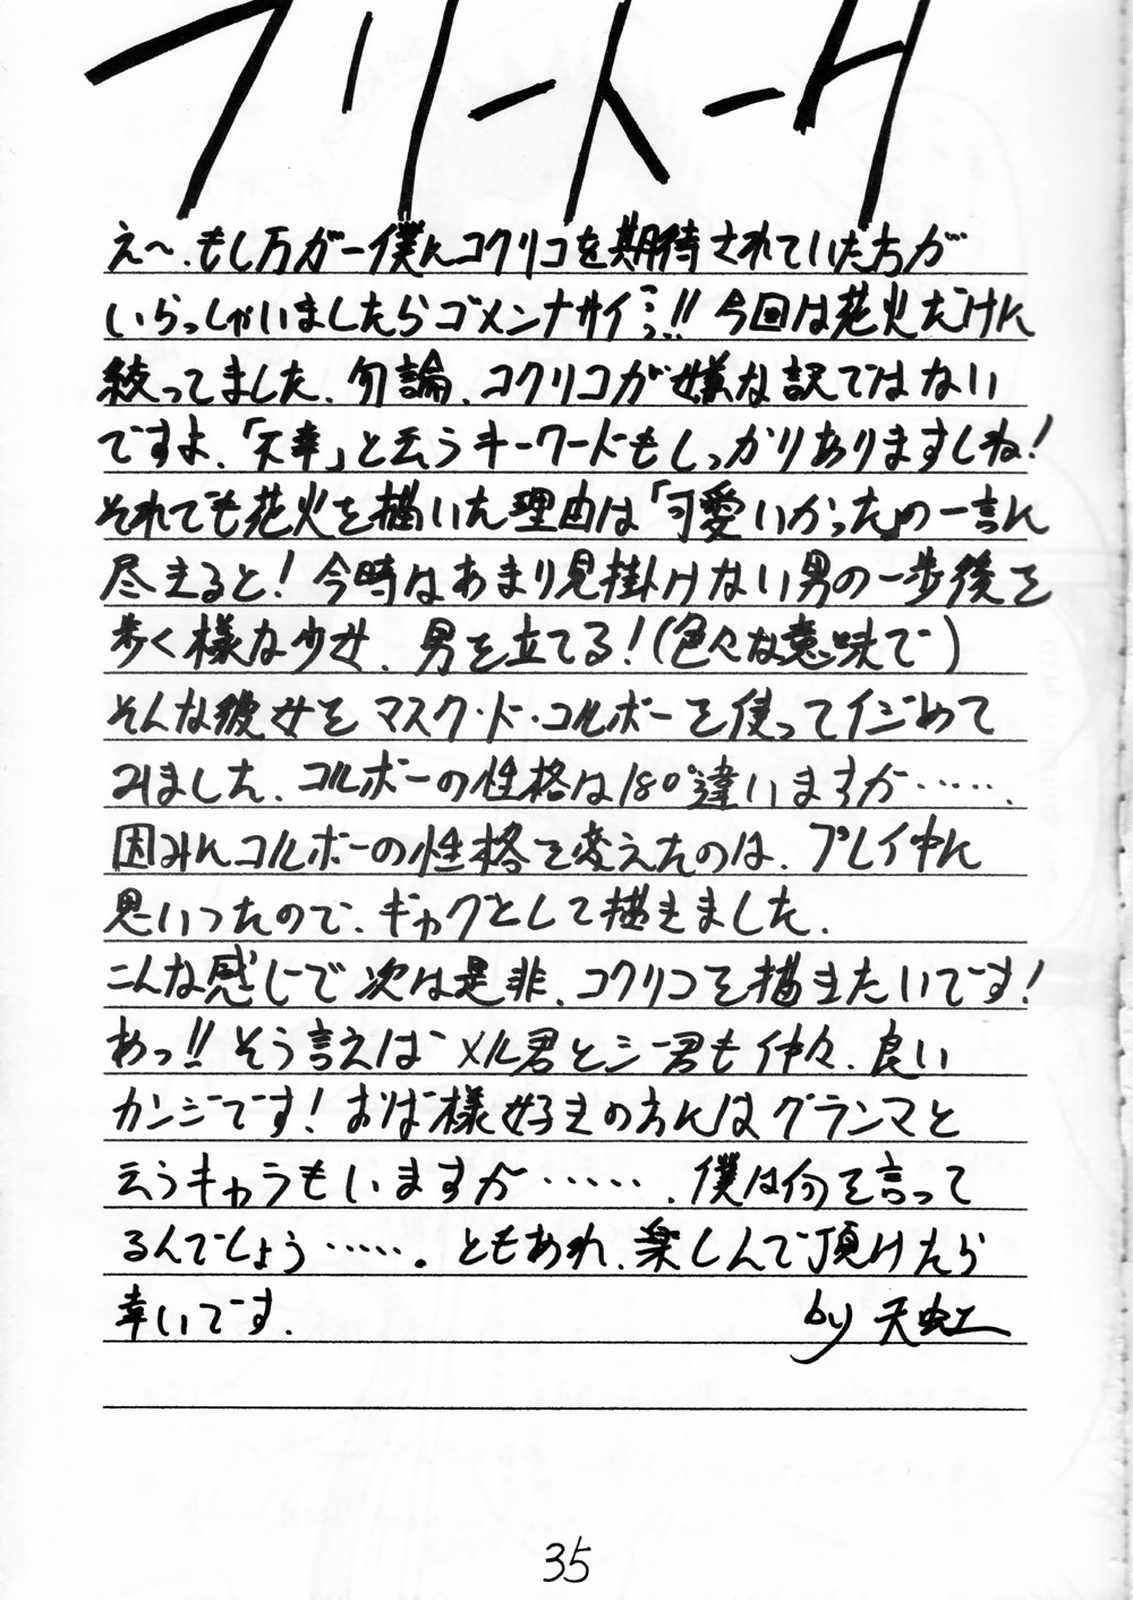 フリートーク
え～、もし万が一僕にコクリコを期待されていた方が
いらっしゃいましたらゴメンナサイ…っ!! 今回は花火だけに
絞ってました、勿論、コクリコが嫌な訳ではない
ですよ、「不幸」と云うキーワードもしっかりありますしね!
それでも花火を描いた理由は「可愛いかった」の一言に
尽きると! 今時はあまり見掛けない男の一歩後を
歩く様な少女、男を立てる! (色々な意味で)
そんな彼女をマスク・ド・コルボーを使ってイジめて
みました、コルボーの性格は180°違いますが……、
因みにコルボーの性格を変えたのは、プレイ中に
思いつったので、ギャグとして描きました、
こんな感じで次は是非、コクリコを描きたいです!
あっ!! そう言えばメル君とシー君も仲々、良い
カンジです! おば様好きの方にはグランマと
云うキャラもいますが……、僕は何を言って
るんでしょう……。ともあれ、楽しんで頂けたら
幸いです、
by 天虹
35